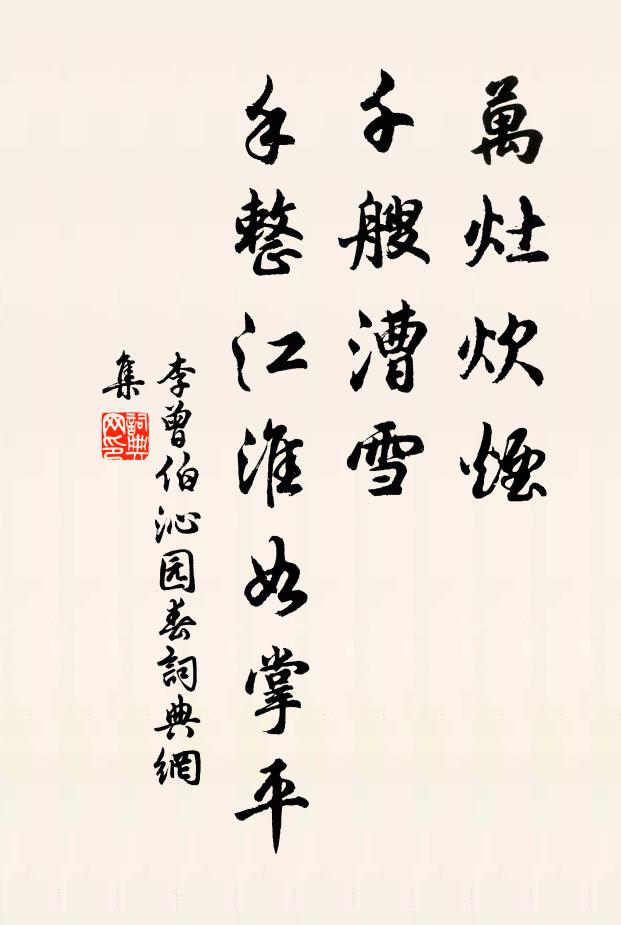 萬灶炊煙
千艘漕雪
手整江淮如掌平
李曾伯沁园春詞典網
集
詞典网印